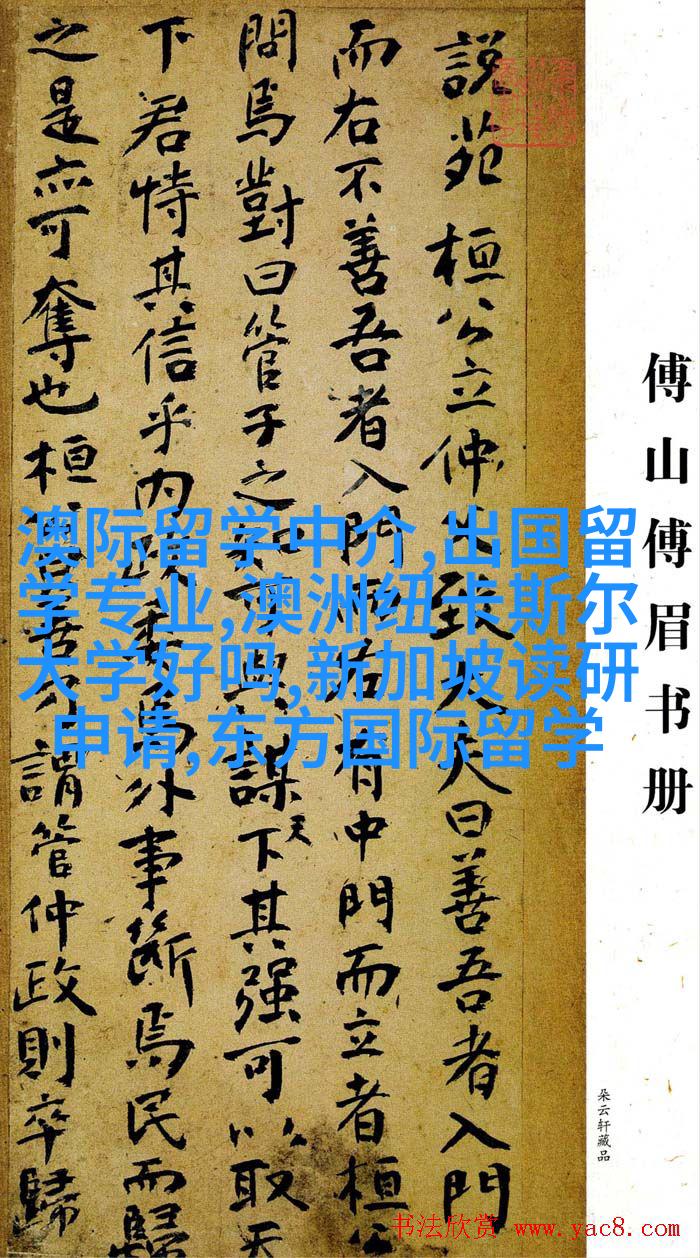 説苑 桓公立仲父致大夫曰善吾者入門
而右不善吾者入門而左有中門而立者桓公
問焉對曰管子之知可與謀天下其强可以取天
下君恃其信乎内政委焉外事斷焉民而歸
之是亦可奪也桓公曰善乃謂管仲政則卒歸
傅山傅眉书册
朵云轩藏品
澳际留学中介,出国留
学专业,澳洲纽卡斯尔
大学好吗,新加坡读研
申请,东方国际留学
书法欣赏 www.yac8.com